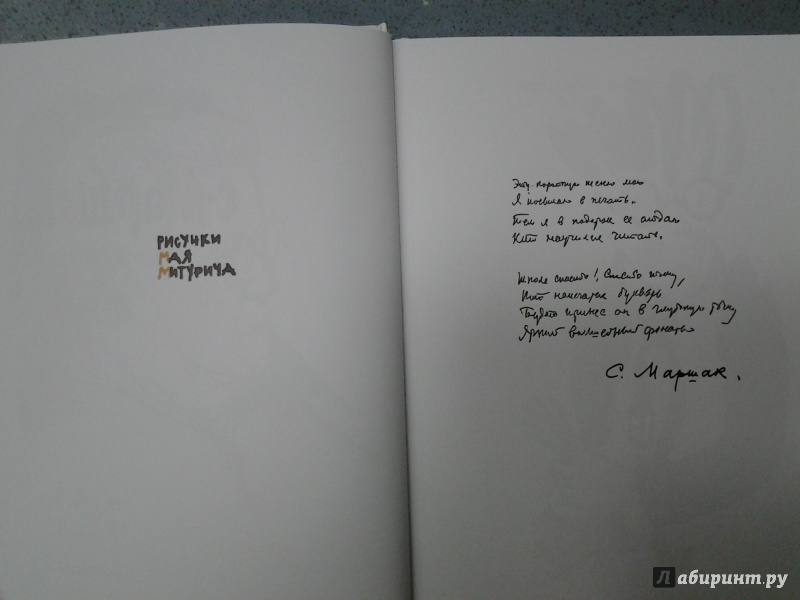 РИСУНКИ
МАЯ
МИТУРИЧА
Эту короткую песню мою
Я посылаю в печать.
Тем я в подарок ее отдаю
Кто научился читать.
Школе спасибо! Спасибо тому,
Кто напечатал букварь
Будто принес он в глубокую тьму
Яркий волшебный фонарь
С. Маршак.
Лабиринт.ру